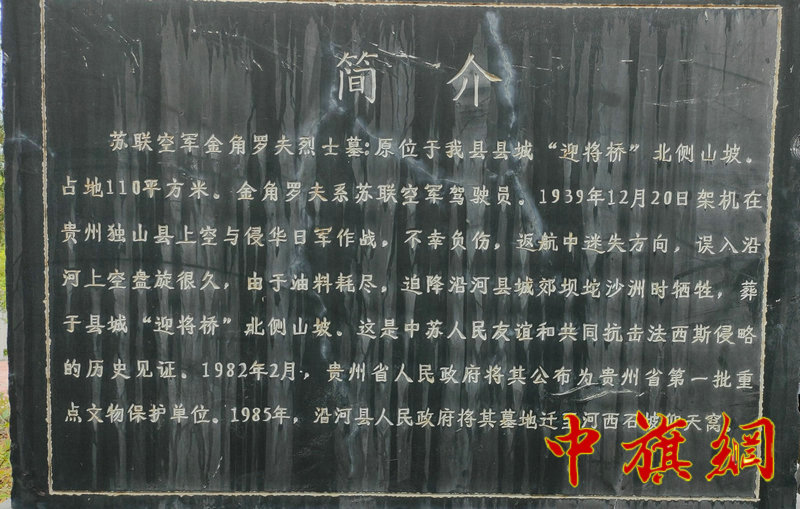 简 介
苏联空军金角罗夫烈士墓:原位于我县县城“迎将桥”北侧山坡。
占地110平方米。金角罗夫系苏联空军驾驶员。1939年12月20日架机在
贵州独山县上空与侵华日军作战,不幸负伤,返航中迷失方向,误入沿
河上空盘旋很久,由于油料耗尽,迫降沿河县城郊坝坨沙洲时牺牲,葬
于县城“迎将桥”北侧山坡。这是中苏人民友谊和共同抗击法西斯侵略
的历史见证。1982年2月,贵州省人民政府将其公布为贵州省第一批重
点文物保护单位。1985年,沿河县人民政府将其墓地迁至河西石坡迎天窝
中旗網